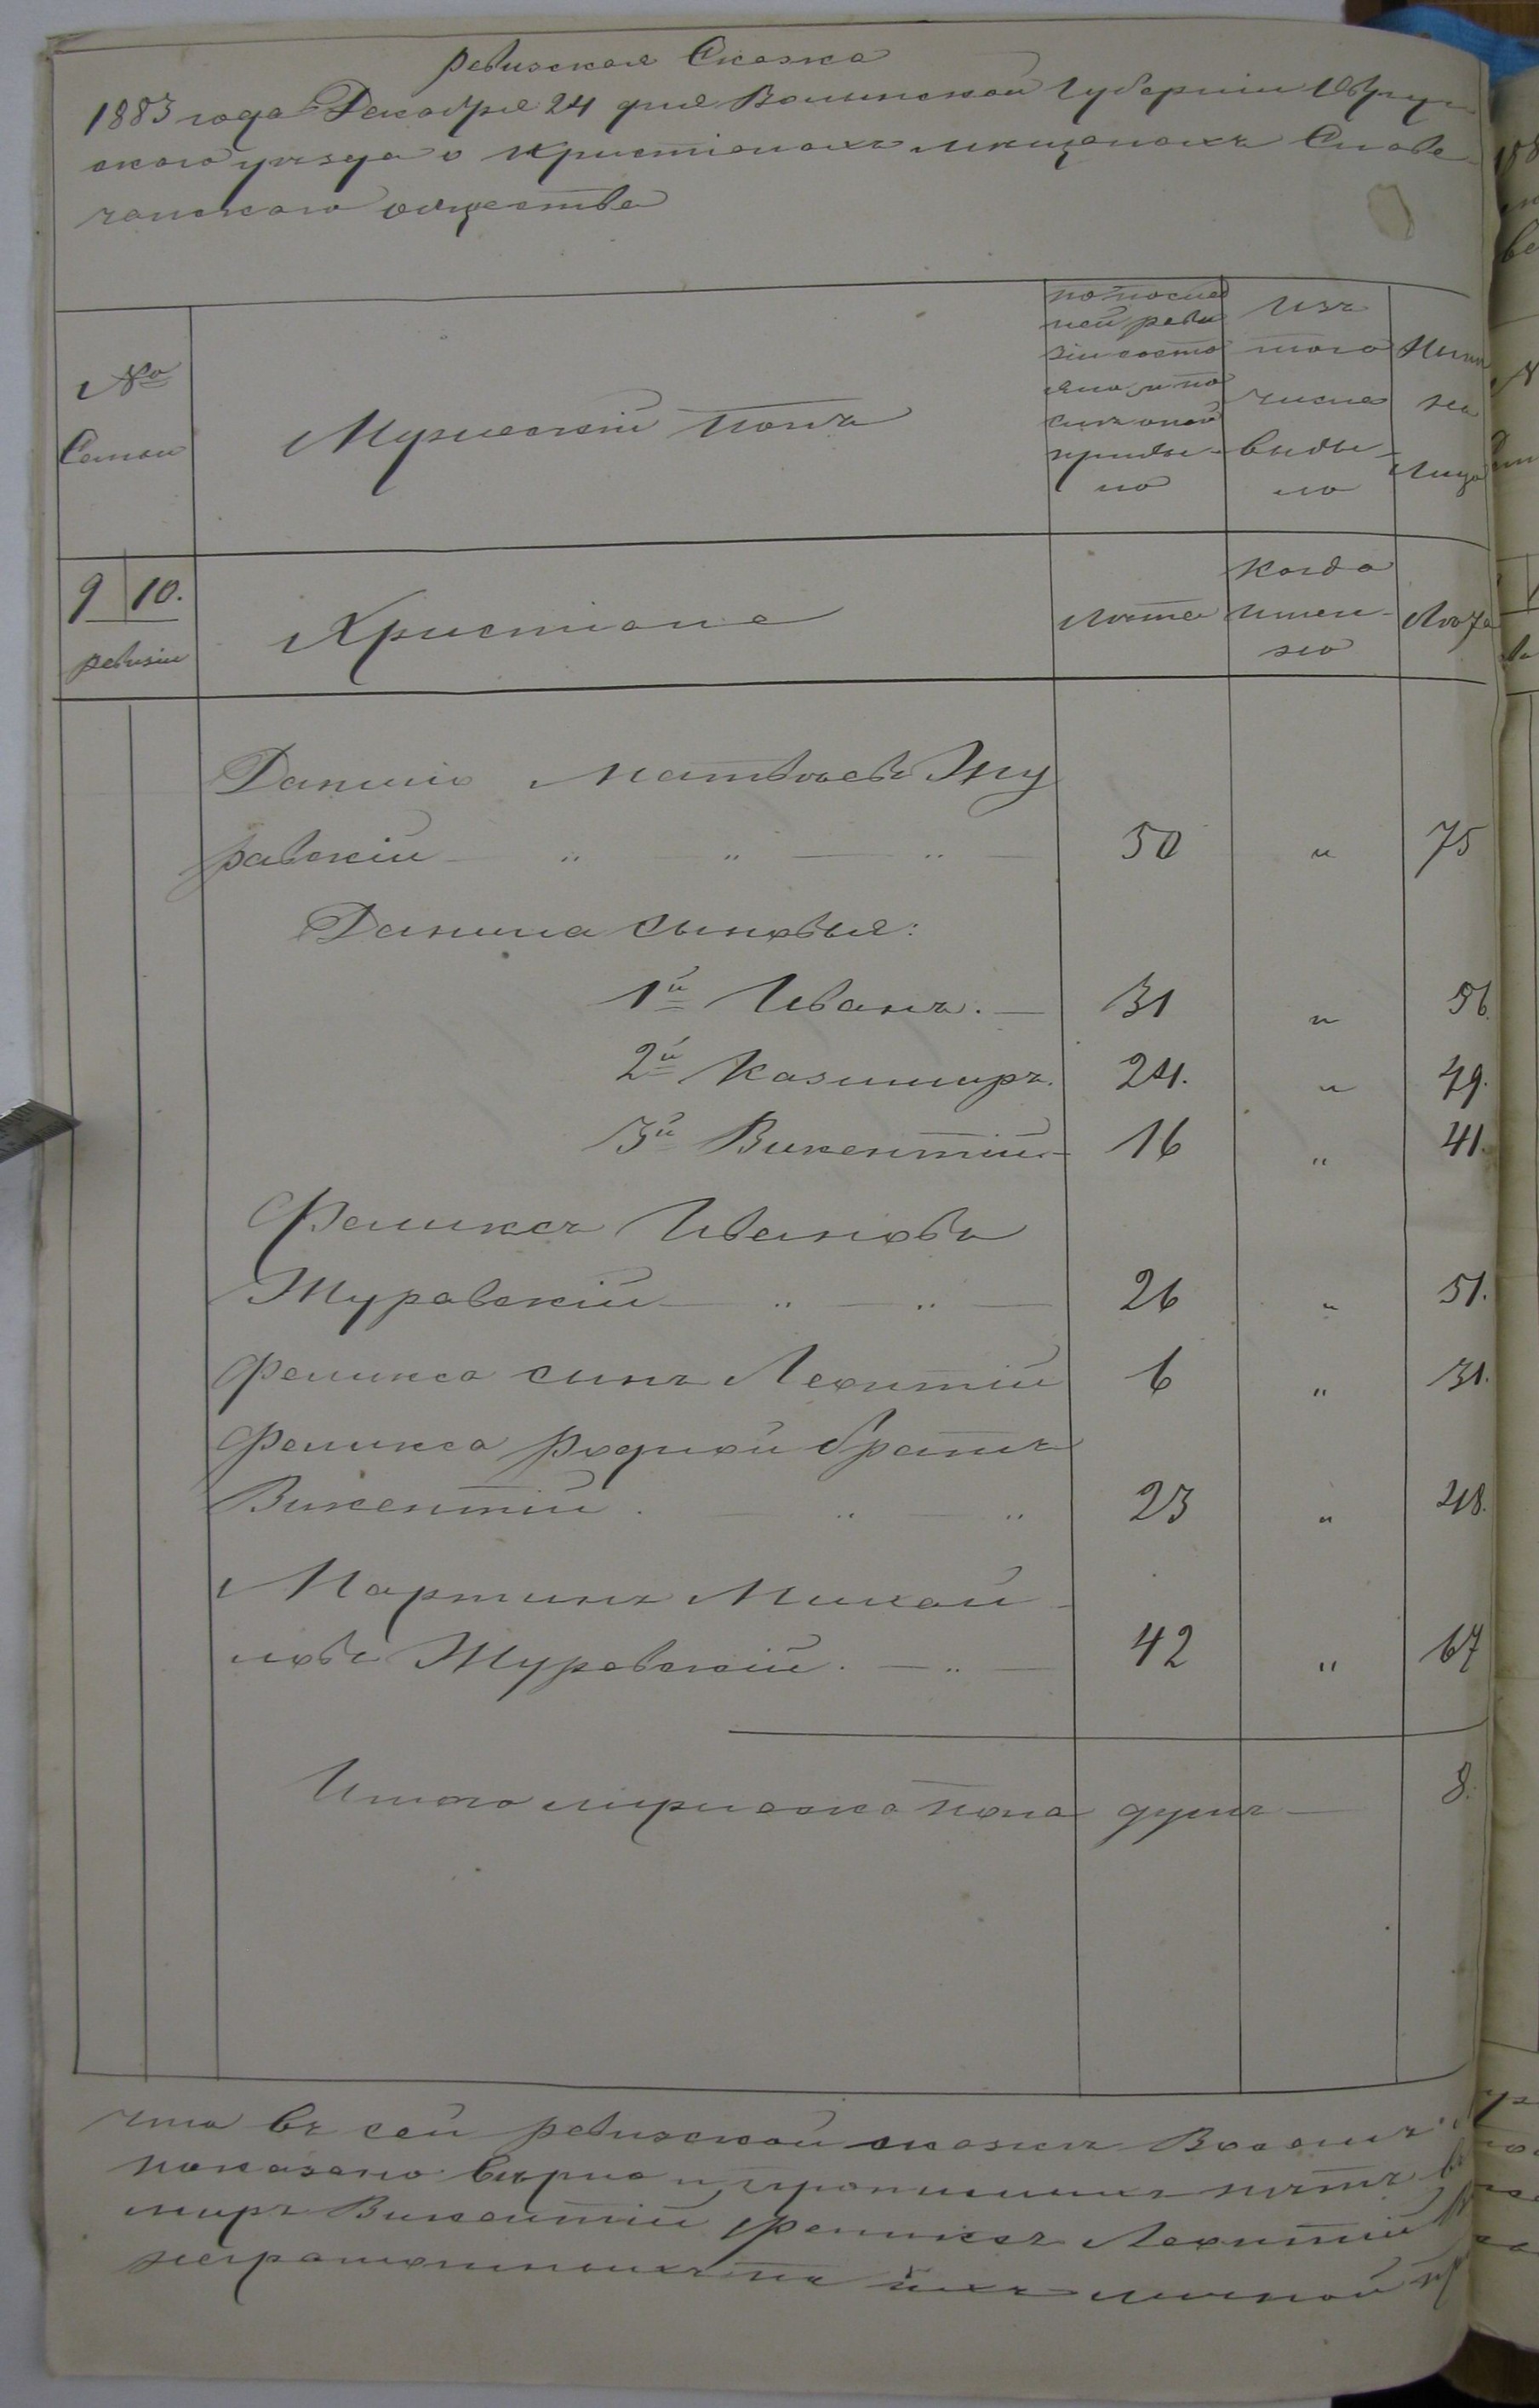 Ревизская Сказка
1883 года Декабря 24 дня Волынской Губернии Овруч-
ского уезда о Христианахъ мещанахъ Слове-
чанского общества
№
Семьи
Мужескій полъ
по послед
ней реви
зіи состо
яло и по
сле оной
прибы-
ло
Изъ
того
числа
выбы-
ло
Ныне
на
лицо
9 10.
ревизіи
Христiане
Лета
Когда
имен-
но
Лета
Данило Матвеевъ Жу
равскій 50 " 75
Данила сыновья:
1й Иванъ. 31 " 56.
2й Казимиръ. 24. " 49.
3й Викентій 16 " 41.
Феликсъ Ивановъ
Журавскій 26 " 51.
Феликса сынъ Леонтій 6 " 31.
Феликса родной братъ
Викентій. 23 " 48.
Мартинъ Михай-
ловъ Журавскій. 42 " 67
Итого мужеска пола душъ 8.
что въ сей ревизской сказке
показано верно и
миръ Викентій Феликсъ Леонтій
неграмотныхъ по ихъ личной